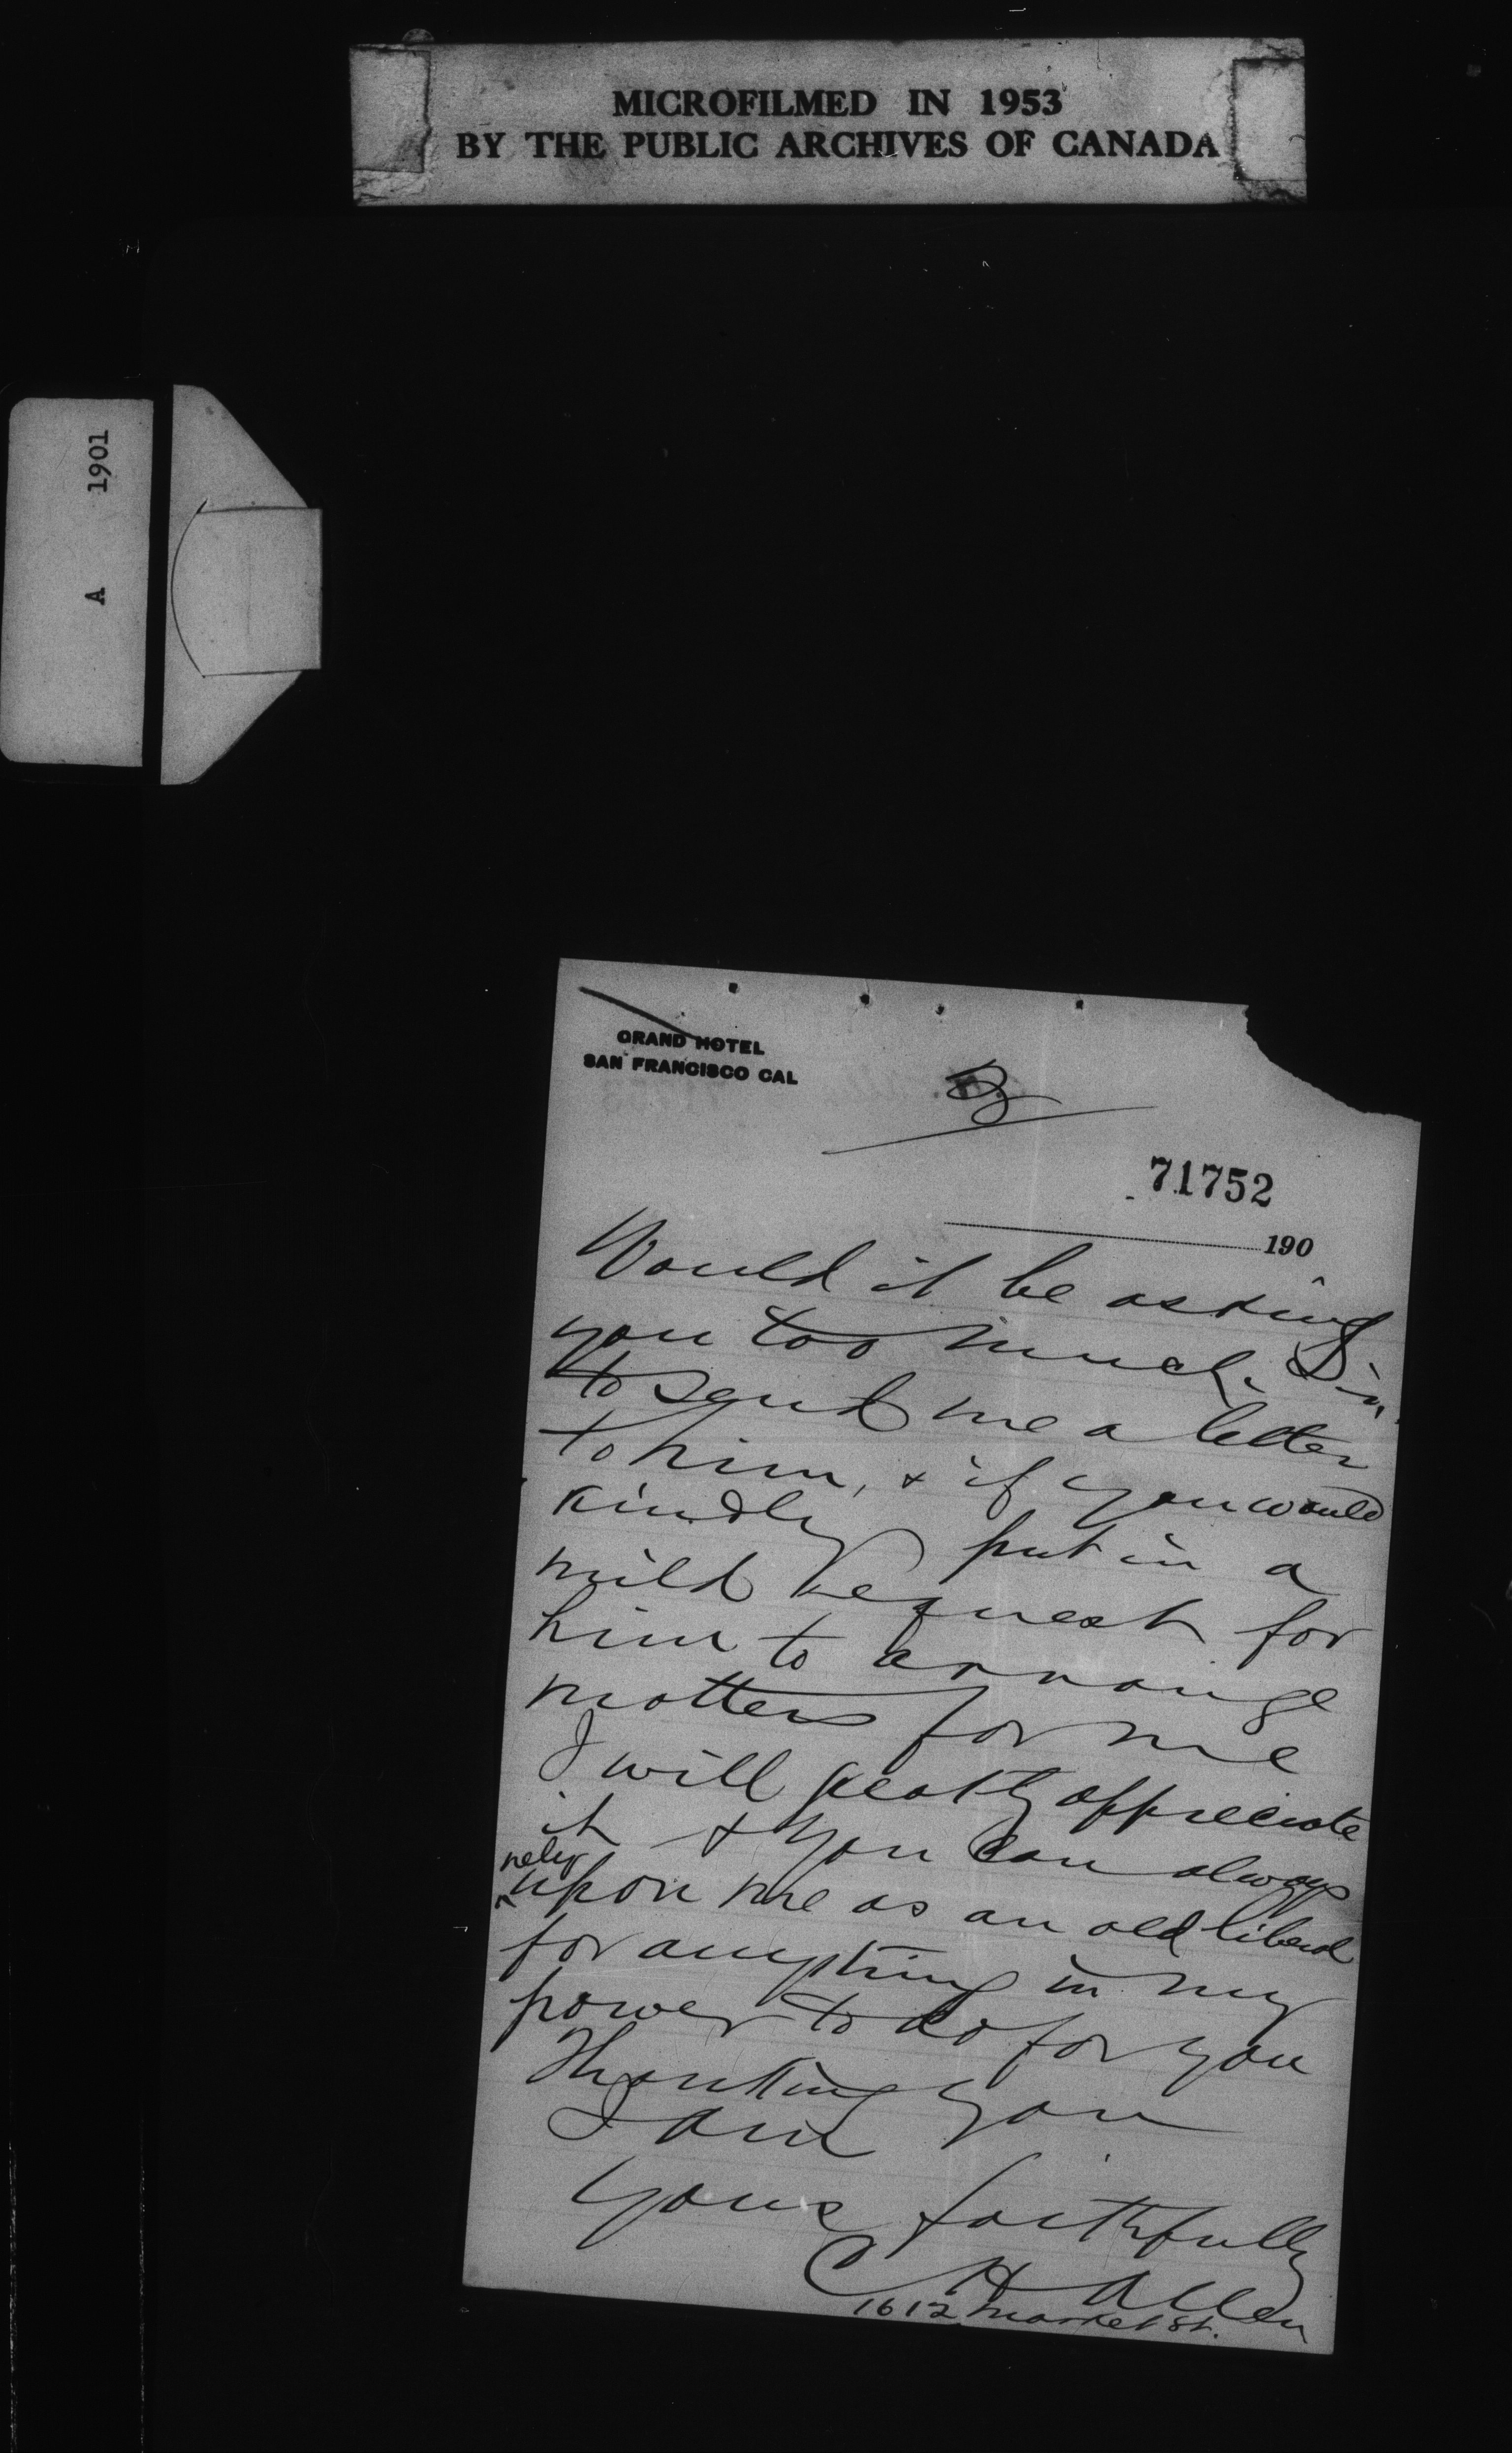 MICROFILMED IN 1953
BY THE PUBLIC ARCHIVES OF CANADA
A 1901
GRAND HOTEL
SAN FRANCISCO CAL
71752
190
Would it be asking
you too much Sir,
to send me a letter
to him, & if you would
kindly put in a
mild request for
him to arrange
matters for me
I will greatly appreciate
it & you can always
rely
^upon me as an old liberal
for anything in my
power to do for you
Thanking you
I am
Yours faithfully
C H Allen
1612 Market St.